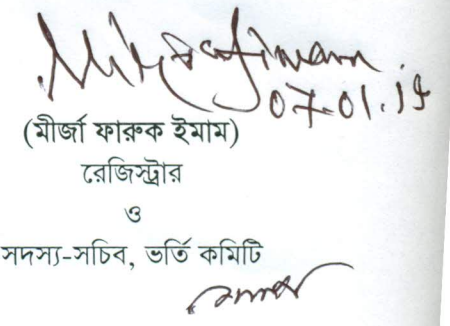 07-01.19
(মীর্জা ফারুক ইমাম)
রেজিস্ট্রার
ও
সদস্য-সচিব, ভর্তি কমিটি